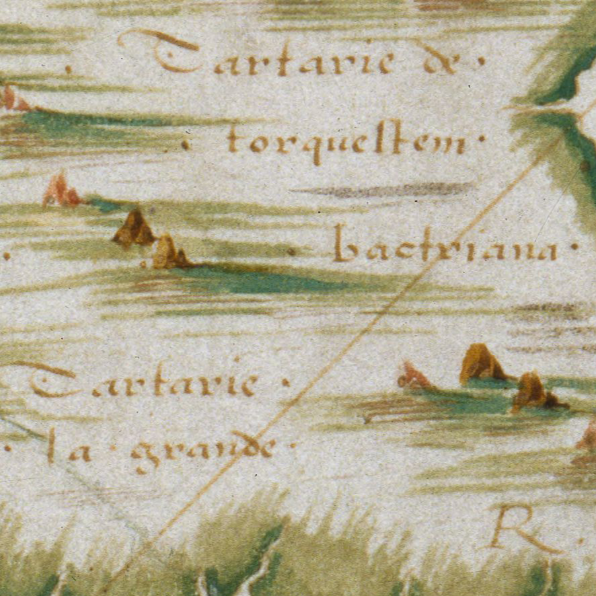 Tartarie de·
· torquestem·
· bactriana·
Tartarie ·
· la · grande ·
R.